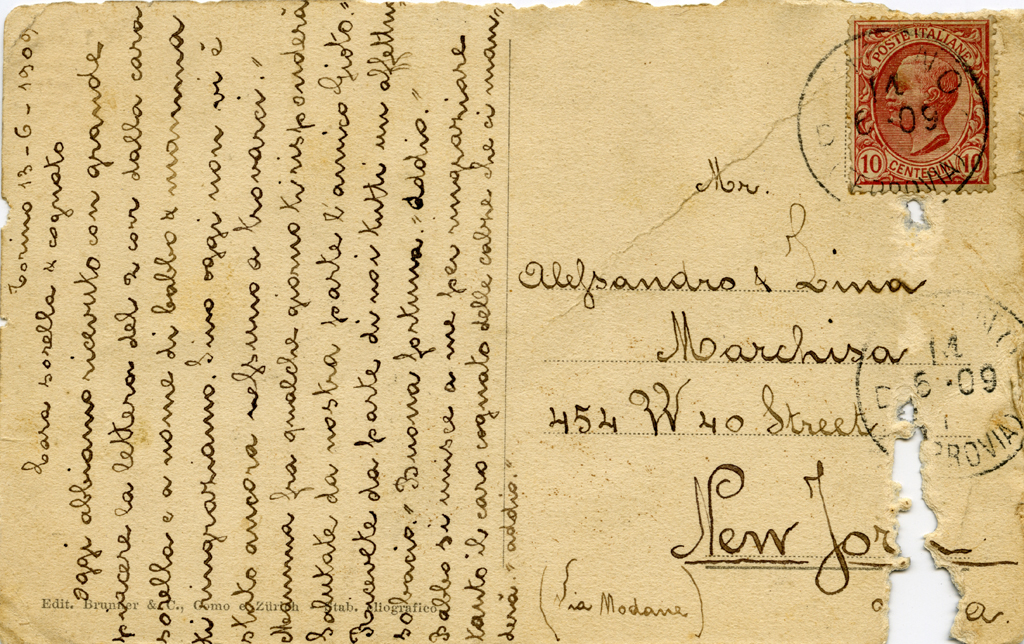 Torino 13-6-1909
Cara sorella & cognato
Oggi abbiamo ricevuto con grande
piacere la lettera del 2 corr dalla cara
sorella e a nome di babbo & mamma
ti ringraziamo. Sino oggi non vi è
stato ancora nessuno a trovarci."
Memma fra qualche giorno ti risponderà
Salutate da nostra parte l'amico Gioto."
Ricevete da parte di noi tutti un affettuo
so bacio." Buona fortuna." addio."
Babbo si unisce a me per ringraziare
tanto il caro cognato delle cabre che ci man
derà." addio."
Edit. Brunner & C., Como e Zürich Stab. eliografico
POSTE ITALIANE
10 CENTESIMI 10
14
6 -09
Mr.
Alessandro & Zina
Marchisa
454 W 40 Street
New Jor
(Via Modane)
a.
14
6 -09
ROVIA)